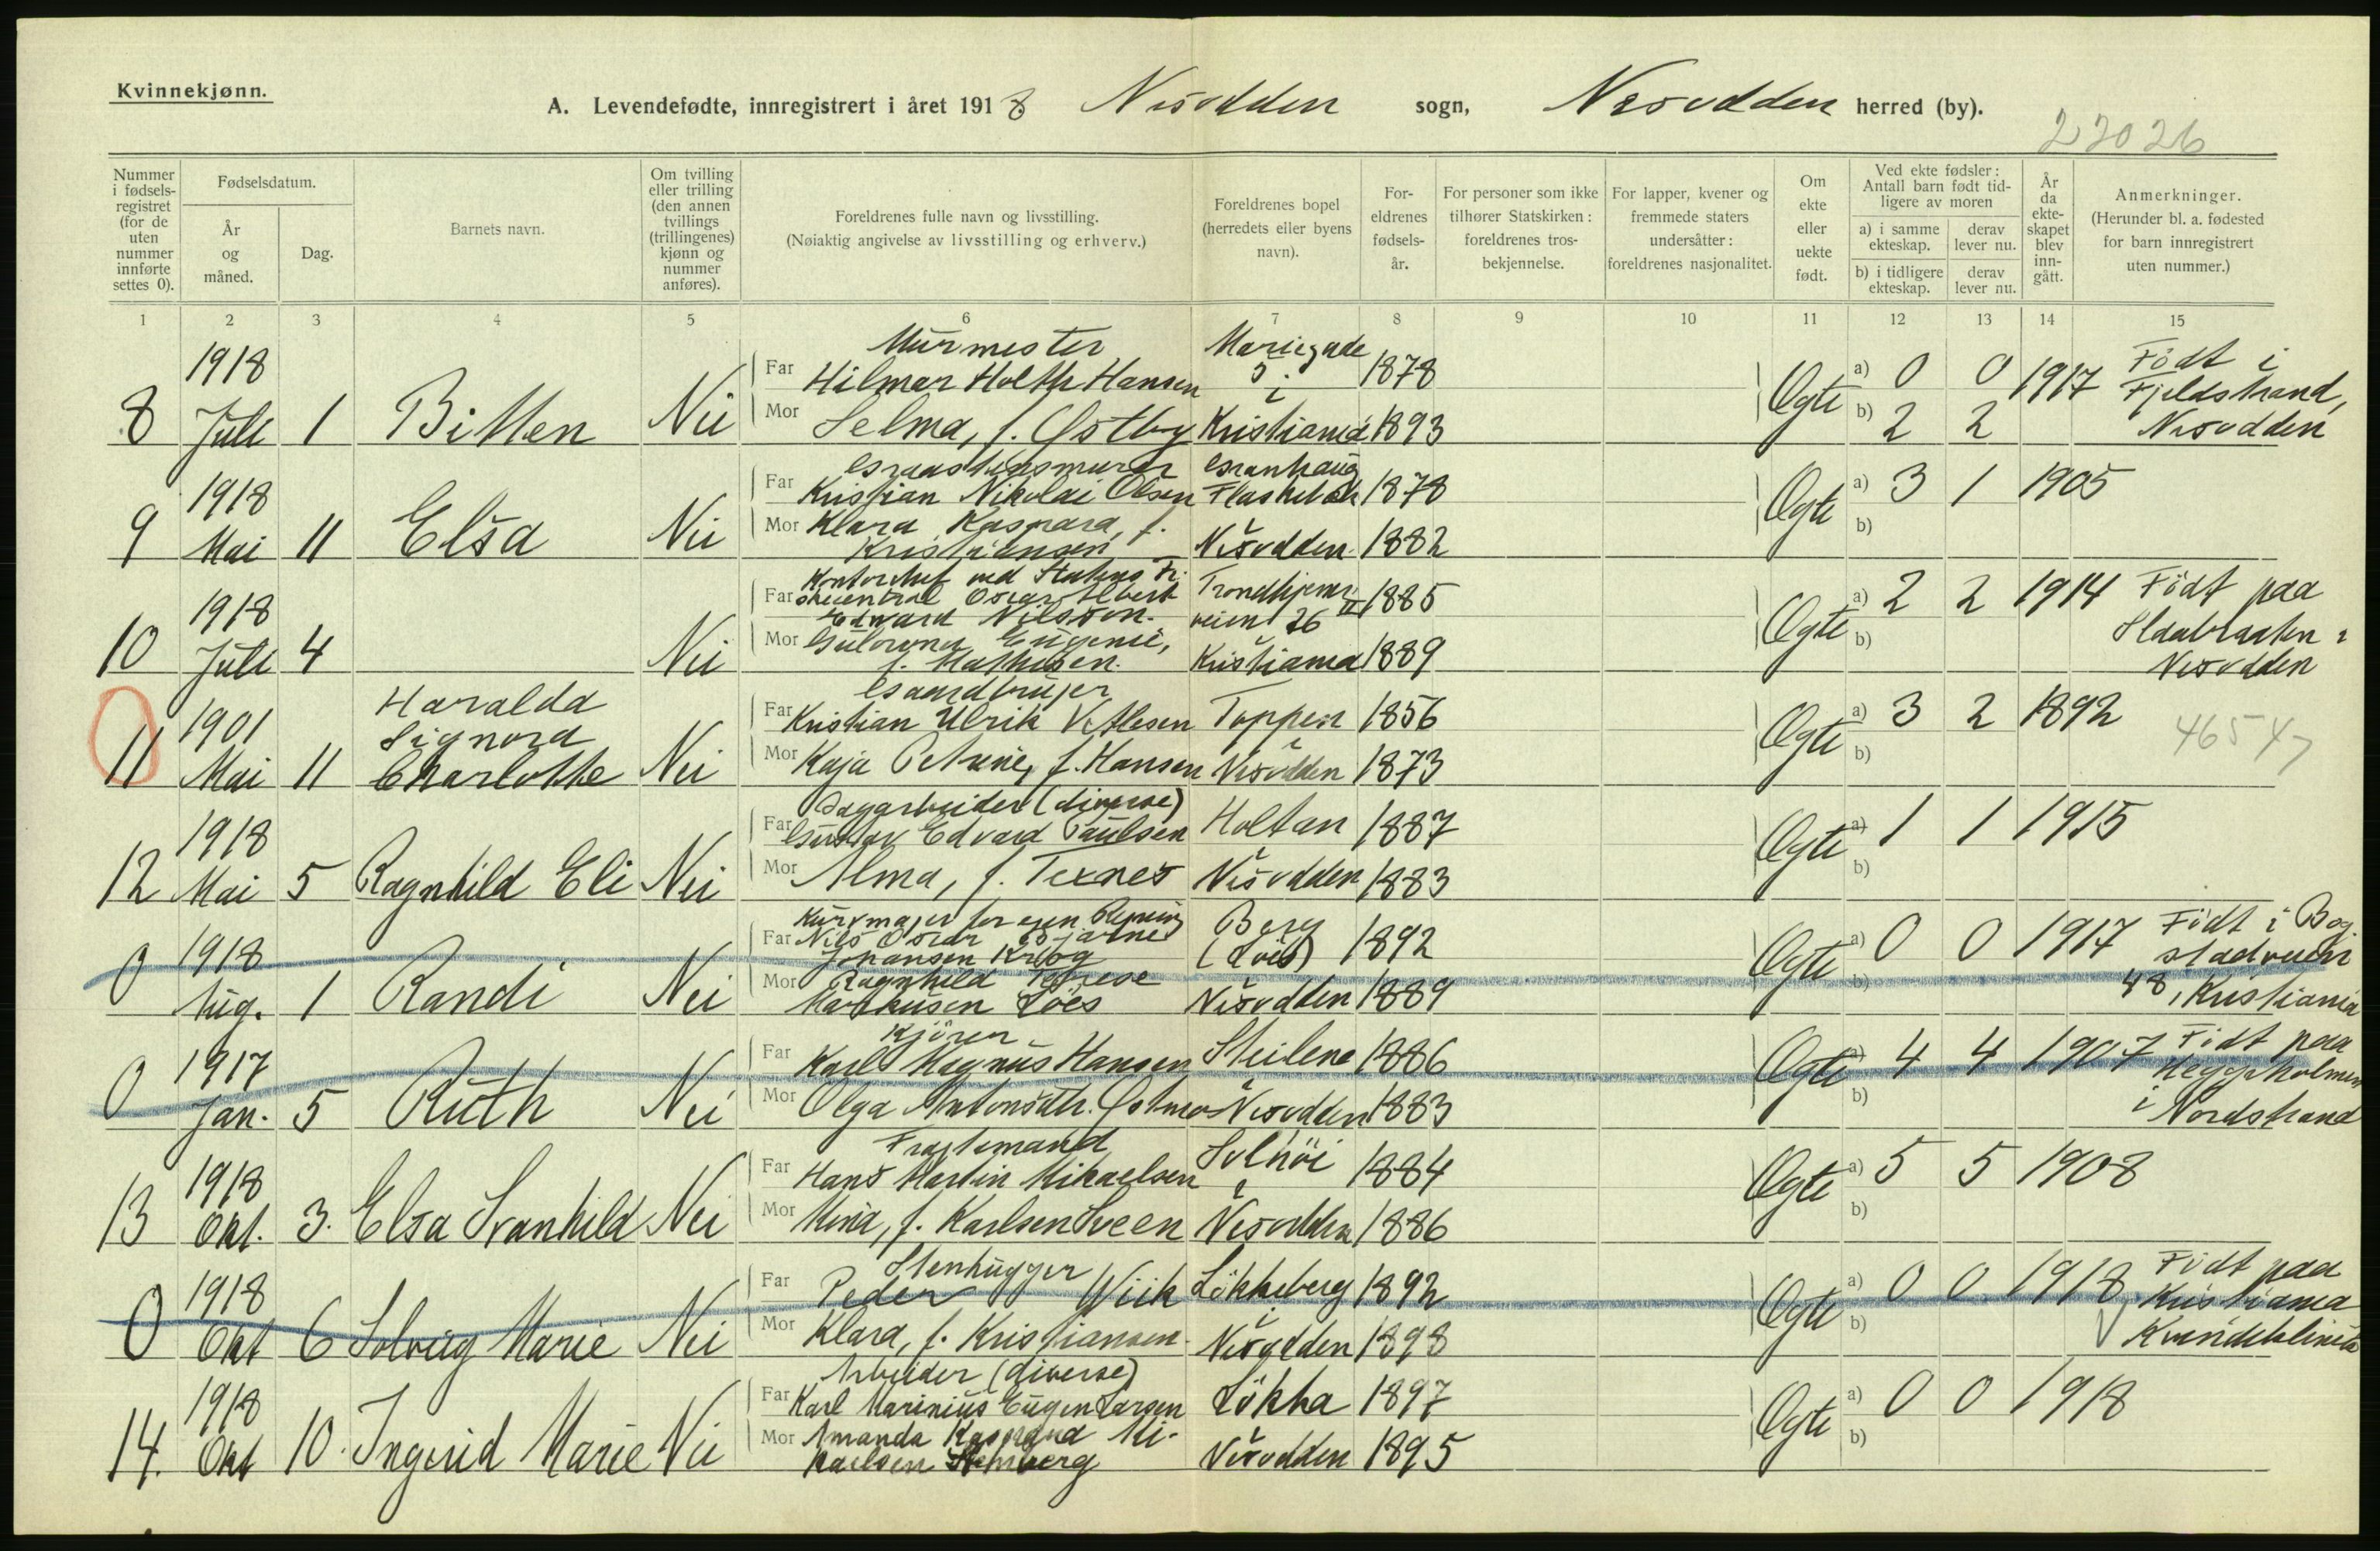 Kvinnekjønn.
A. Levendefødte, innregistrert i året 1918 Nesodden sogn, Nesodden herred (by).
22026
Nummer i fødsels-registret (for de uten nummer innførte settes 0).
Fødselsdatum.
År og måned.
Dag.
Barnets navn.
Om tvilling eller trilling (den annen tvillings (trillingenes) kjønn og nummer anføres).
Foreldrenes fulle navn og livsstilling.
(Nøiaktig angivelse av livsstilling og erhverv.)
Foreldrenes bopel (herredets eller byens navn).
For-eldrenes fødsels-år.
For personer som ikke tilhører Statskirken: foreldrenes tros-bekjennelse.
For lapper, kvener og fremmede staters undersåtter: foreldrenes nasjonalitet.
Om ekte eller uekte født.
Ved ekte fødsler: Antall barn født tid-ligere av moren
a) i samme ekteskap.
derav lever nu.
b) i tidligere ekteskap.
derav lever nu.
År da ekte-skapet blev inn-gått.
Anmerkninger.
(Herunder bl. a. fødested for barn innregistrert uten nummer.)
1 2 3 4 5 6 7 8 9 10 11 12 13 14 15
Murmester Mariegade
1918 Far Hilmar Holth Hansen 5 i 1878 a) 0 0 1917 Født i Fjeldstrand,
8 Juli 1 Bitten Nei Mor Selma, f. Østby Kristiania 1893 Ægte b) 2 2 Nesodden
Graastensmurer Granhaug
1918 Far Kristian Nikolai Olsen Flaskebæk 1878 a) 3 1 1905
9 Mai 11 Elsa Nei Mor Klara Kaspara, f. Kristiansen Nesodden 1882 Ægte b)
Kontorchef ved Statens Fi-
1918 Far skecentral Oscar Albert Edward Nilsson. Trondhjems-veien 26 II 1885 a) 2 2 1914 Født paa
10 Juli 4 Nei Mor Eugenie, f. Mathisen. Kristiania 1889 Ægte b) i Nesodden
Gaardbruger
1901 Haralda Far Kristian Ulrik Vetlesen Toppen 1856 a) 3 2 1892
11 Mai 11 Signora Charlotte Nei Mor Kaja Petrine, f. Hansen Nesodden 1873 Ægte b) 46547
Daggarbeider (diverse)
1918 Far Gustav Edvard Paulsen Holtan 1887 a) 1 1 1915
12 Mai 5 Ragnhild Eli Nei Mor Alma, f. Texnes Nesodden 1883 Ægte b)
Kurvmager for egen Regning
1918 Far Nils Oscar Bjarne Johansen Krog Berg 1892 a) 0 0 1917 Født i Bog-
0 Aug. 1 Randi Nei Mor Ragnhild Markusen Löes Nesodden 1889 Ægte b) stadveien 48, Kristiania
Kjörer
1917 Far Karl Magnus Hansen Steilene 1886 a) 4 4 1907 Født paa
0 Jan. 5 Ruth Nei Mor Olga Antonsdtr. Østmo Nesodden 1883 Ægte b) Heggholmen i Nordstrand
Fragtemand
1918 Far Hans Martin Mikaelsen Solhöi i 1884 a) 5 5 1908
13 Okt. 3. Elsa Svanhild Nei Mor Mina, f. Karlsen Sveen Nesodden 1886 Ægte b)
Stenhugger
1918 Far Peder Wiik Lökkeberg 1892 a) 0 0 1918 Født paa
0 Okt 6 Solveig Marie Nei Mor Klara, f. Kristiansen. Nesodden 1898 Ægte b) Kristiania Kvindeklinik
Arbeider (diverse)
1918 Far Karl Marinius Eugen Larsen Lökka 1897 a) 0 0 1918
14. Okt 10. Ingerid Marie Nei Mor Amanda Kaspara Mi-kaelsen Nesodden 1895 Ægte b)